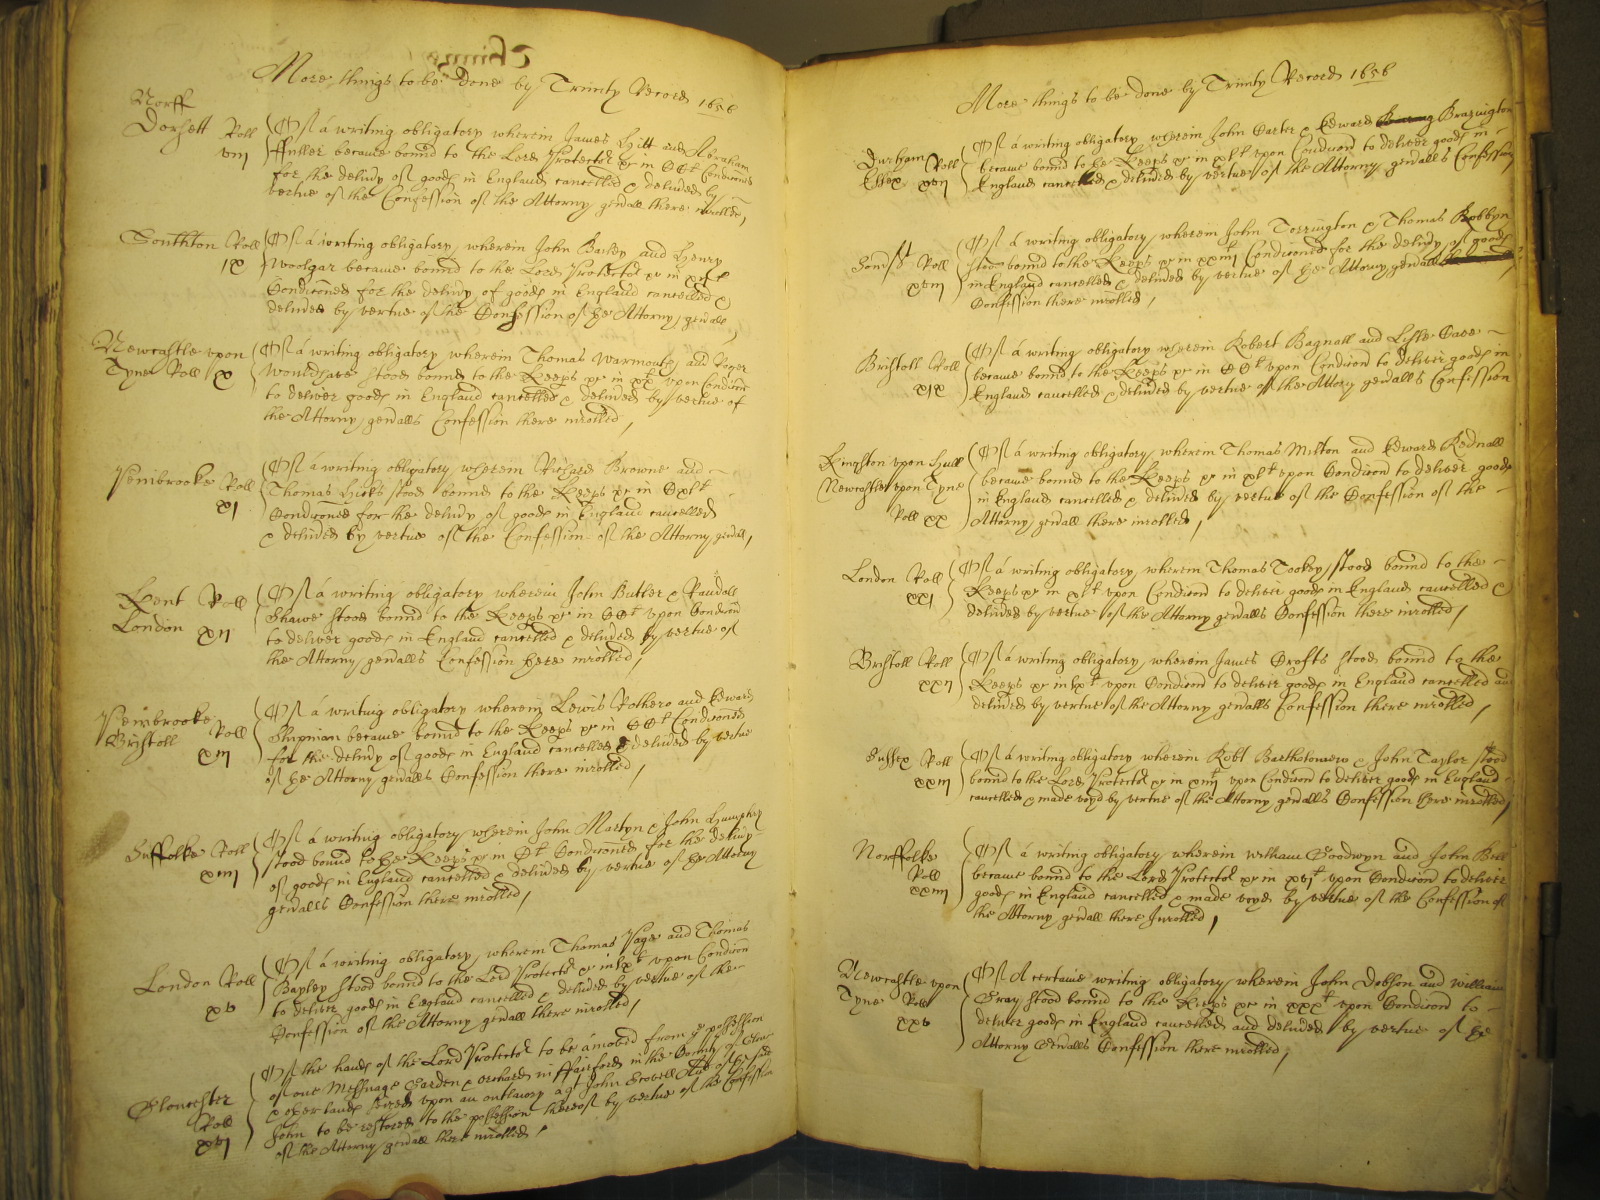 More things to be done by Trinity Record 1656
Norff
Dorsett Roll
viij
Of a writing obligatory wherein James Hitt and Abraham
ffuller became bound to the Lord Protector &c in CCl Condiconed
for the delivy of goods in England cancelled & delivered by
vertue of the Confession of the Attorny genall there inrolled,
Southton Roll
ix
Of a writing obligatory wherein John Bailey and Henry
Woolgar became bound to the Lord Protector &c in
Condiconed for the delivy of goods in England cancelled &
delivered by vertue of the Confession of the Attorny genall,
Newcastle upon
Tyne Roll x
Of a writing obligatory wherein Thomas Warmouth and Roger
stood bound to the Keeps &c in xl upon Condicon
to deliver goods in England cancelled & delivered by vertue of
the Attorny genalls Confession there inrolled,
Pembrooke Roll
xj
Of a writing obligatory wherein Richard Browne and
Thomas Hicks stood bound to the Keeps &c in Cxl
Condiconed for the delivy of goods in England cancelled
& delivered by vertue of the Confession of the Attorny genall,
Kent Roll
London xij
Of a writing obligatory wherein John Butler & Randall
Shawe stood bound to the Keeps &c in CCl upon Condicon
to deliver goods in England cancelled & delivered by vertue of
the Attorny genalls Confession here inrolled,
Pembrooke
Bristoll Roll
xiij
Of a writing obligatory wherein Lewis Rothero and Edward
Shipman became bound to the Keeps &c in CCl Condiconed
for the delivy of goods in England cancelled & delivered by vertue
of the Attorny genalls Confession there inrolled,
Suffolke Roll
xiiij
Of a writing obligatory wherein John Martyn & John Humphry
stood bound to the Keeps &c in Cl Condiconed for the delivy
of goods in England cancelled & delivered by vertue of the Attorny
genalls Confession there inrolled,
London Roll
xv
Of a writing obligatory wherein Thomas Page and Thomas
Bayley stood bound to the Lord Protector &c in lxl upon Condicon
to deliver goods in England cancelled & delivered by vertue of the
Confession of the Attorny genall there inrolled,
Gloucester
Roll
xvj
Of the hands of the Lord Protector to be amoved from ye possession
of one Messuage Garden & orchard in ffairford in the County of Glouc
& other lands seized upon an outlawry agt John Scovell And of the said
John to be restored to the possession thereof by vertue of the Confession
of the Attorny genall there inrolled,
More things to be done by Trinity Record 1656
Durham Roll
Essex xvij
Of a writing obligatory wherein John Carter & Edward Brazington
became bound to the Keeps &c in xll upon Condicon to deliver goods in
England cancelled & delivered by vertue of the Attorny genalls Confession
Somst Roll
xviij
Of a writing obligatory wherein John Torrington & Thomas Robbyn
stood bound to the Keeps &c in xxiiijl Condiconed for the delivy of goods
in England cancelled & delivered by vertue of the Attorny genall
Confession there inrolled,
Bristoll Roll
xix
Of a writing obligatory wherein Robert Bagnall and
became bound to the Keeps &c in CCl upon Condicon to deliver goods in
England cancelled & delivered by vertue of the Attory genalls Confession
Kingston upon Hull
Newcastle upon Tyne
Roll xx
Of a writing obligatory wherein Thomas Milton and Edward Rednall
became bound to the Keeps &c in xll upon Condicon to deliver goods
in England cancelled & delivered by vertue of the Confession of the
Attorny genall there inrolled,
London Roll
xxj
Of a writing obligatory wherein Thomas Tookey stood bound to the
Keeps &c in xll upon Condicon to deliver goods in England cancelled &
delivered by vertue of the Attorny genalls Confession there inrolled,
Bristoll Roll
xxij
Of a writing obligatory wherein James Crofts stood bound to the
Keeps &c in lxl upon Condicon to deliver goods in England cancelled and
delivered by vertue of the Attorny genalls Confession there inrolled,
Sussex Roll
xxiij
Of a writing obligatory wherein Robt Bartholomew & John Taylor stood
bound to the Lord Protector &c in xiijl upon Condicon to deliver goods in England
cancelled & made voyd by vertue of the Attorny genalls Confession there inrolled,
Norffolke
Roll
xxiiij
Of a writing obligatory wherein William Goodwyn and John Bell
became bound to the Lord Protector &c in xvjl upon Condicon to deliver
goods in England cancelled & made voyd by vertue of the Confession of
the Attorny genall there Inrolled,
Newcastle upon
Tyne Roll
xxv
Of A certaine writing obligatory wherein John Dobson and William
Gray stood bound to the Keeps &c in xxxl upon Condicon to
deliver goods in England cancelled and delivered by vertue of the
Attorny Genalls Confession there inrolled,